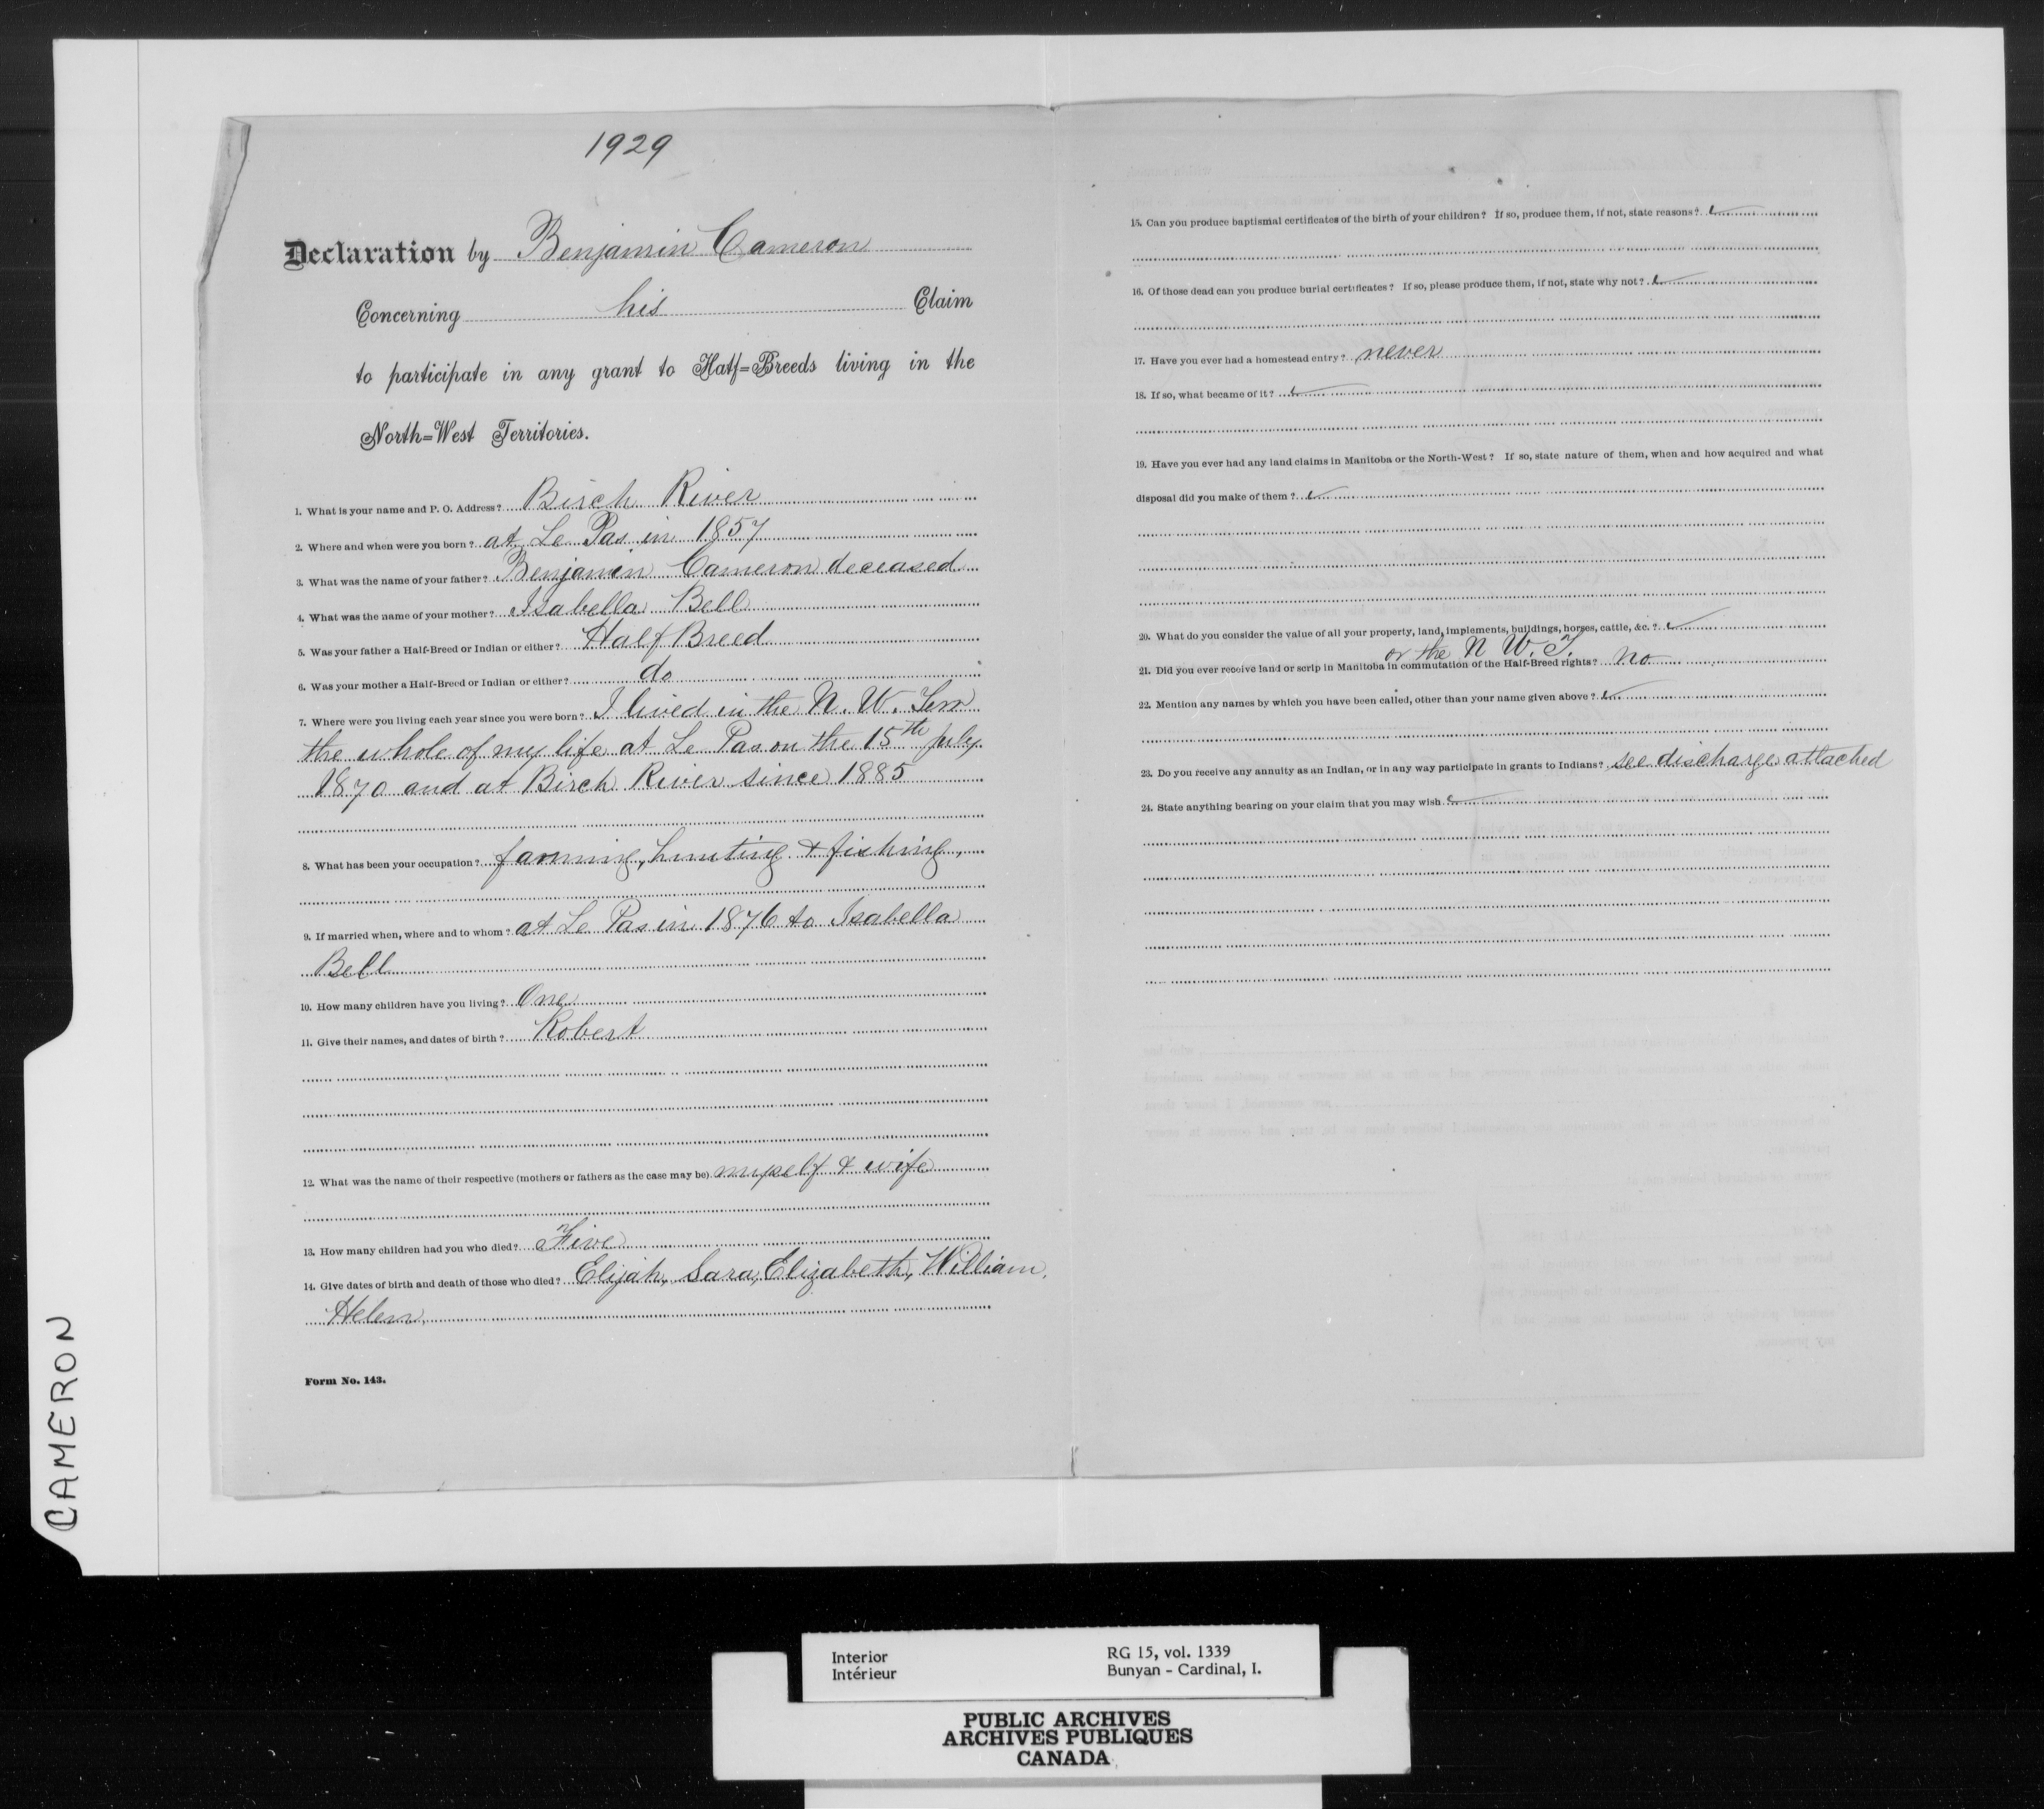 1929
Declaration by Benjamin Cameron
Concerning his Claim
to participate in any grant to Half=Breeds living in the
North=West Territories.
1. What is your name and P. O. Address? Birch River
2. Where and when were you born? at Le Pas in 1857
3. What was the name of your father? Benjamin Cameron deceased
4. What was the name of your mother? Isabella Bell
5. Was your father a Half-Breed or Indian or either? Half Breed
6. Was your mother a Half-Breed or Indian or either? do
7. Where were you living each year since you were born? I lived in the N. W. Terr
the whole of my life at Le Pas on the 15th July
1870 and at Birch River since 1885
8. What has been your occupation? farming, hunting & fishing,
9. If married when, where and to whom? at Le Pas in 1876 to Isabella
Bell
10. How many children have you living? One
11. Give their names, and dates of birth? Robert
12. What was the name of their respective (mothers or fathers as the case may be). myself & wife
13. How many children had you who died? Five
14. Give dates of birth and death of those who died? Elijah, Sara, Elizabeth, William,
Helen,
Form No. 143.
15. Can you produce baptismal certificates of the birth of your children? If so, produce them, if not, state reasons?
16. Of those dead can you produce burial certificates? If so, please produce them, if not, state why not?
17. Have you ever had a homestead entry? never
18. If so, what became of it?
19. Have you ever had any land claims in Manitoba or the North-West? If so, state nature of them, when and how acquired and what
disposal did you make of them?
20. What do you consider the value of all your property, land, implements, buildings, horses, cattle, &c.?
or the N W. T.
21. Did you ever receive land or scrip in Manitoba in commutation of the Half-Breed rights? no
22. Mention any names by which you have been called, other than your name given above?
23. Do you receive any annuity as an Indian, or in any way participate in grants to Indians? see discharge attached
24. State anything bearing on your claim that you may wish
CAMERON
Interior RG 15, vol. 1339
Intérieur Bunyan - Cardinal, I.
PUBLIC ARCHIVES
ARCHIVES PUBLIQUES
CANADA